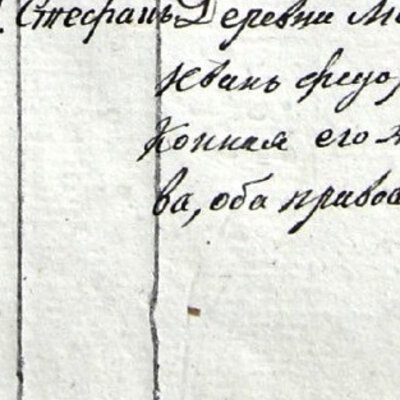 Стефанъ Деревни М
Иванъ Федо
Конная его
ва, оба право